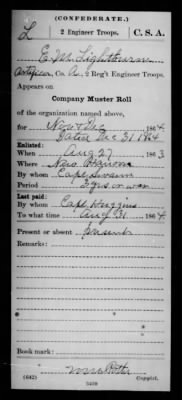 (CONFEDERATE.)
L 2 Engineer Troops. C. S. A.
E. M. Lightburn
Artificer, Co. A, 2 Reg't Engineer Troops.
Appears on
Company Muster Roll
of the organization named above,
for Nov & Dec 1864
Dated Dec 31 1864
Enlisted:
When Aug 27 186 3
Where
By whom Capt
Period 3 yrs or war
Last paid:
By whom Capt Huggins
To what time Aug 31 1864
Present or absent Present
Remarks:
Book mark:
(642) Copyist.